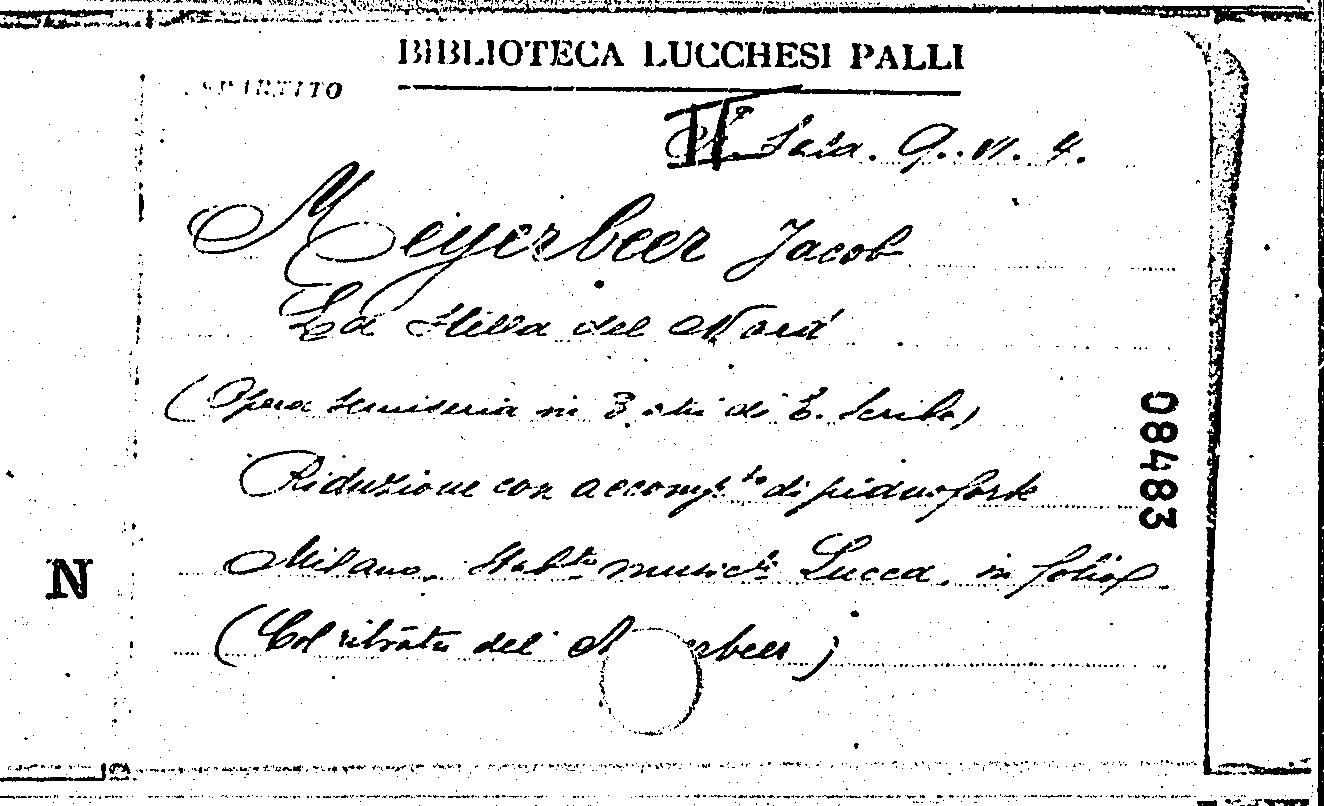 BIBLIOTECA LUCCHESI PALLI
SPARTITO
II Sala. 9. VI. 4.
Meyerbeer Jacob
La Stella del Nord
(Opera semiseria in 3 atti di E. Scribe)
Riduzione con accompto di pianoforte
08483
Milano, Stabto music. Lucca, in folio.
N
(Col ritratto del M rbeer)